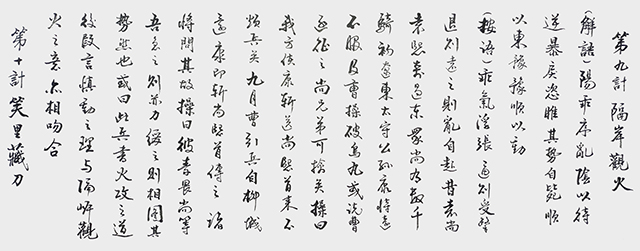 第九計 隔岸觀火
(解語)陽乖序亂陰以待
逆暴戾恣睢其勢自毙順
以東豫豫順以動
(按語)乖氣浮張逼則受擊
退則遠之則亂自起昔袁尚
袁熙奔遼東眾尚有數千
騎初遼東太守公孫康恃遠
不服及曹操破烏丸或說曹
遂征之尚兄弟可擒矣操曰
我方使康斬送尚熙首來不
煩兵矣九月曹引兵自柳城
還康即斬尚熙首傳之諸
將問其故操曰彼素畏尚等
吾急之則并力緩之則相圖其
勢然也或曰此兵書火攻之道
後段言慎動之理与隔岸觀
火之意亦相吻合
第十計 笑里藏刀